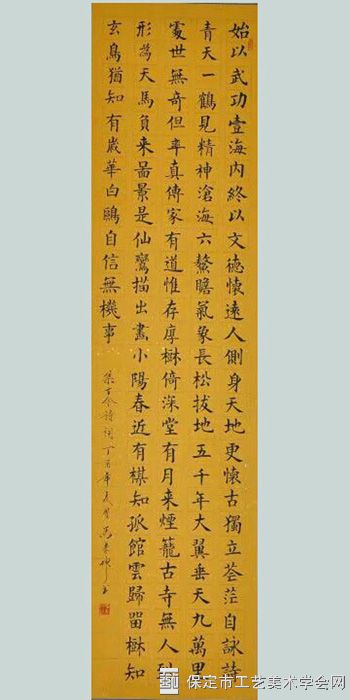 始以武功壹海内終以文德懷遠人側身天地更懷古獨立苍茫自詠詩
青天一鶴見精神滄海六鰲瞻氣象長松拔地五千年大翼垂天九萬里
處世無奇但率真傳家有道惟存厚樹倚深堂有月来煙籠古寺無人到
形為天馬負来啚景是仙鸞描出畵小陽春近有棋知孤館雲歸留樹知
玄鳥猶知有歲華白鷗自信無機事
集古今詩詞丁酉年
保定市工艺美术学会网